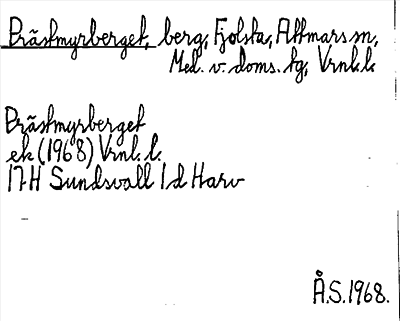 Prästmyrberget, berg, Fjolsta, Attmars sn,
Med. v. doms. tg, Vrnl. l.
Prästmyrberget
ek (1968) Vrnl. l.
17H Sundsvall 1d Harv
Å.S. 1968.